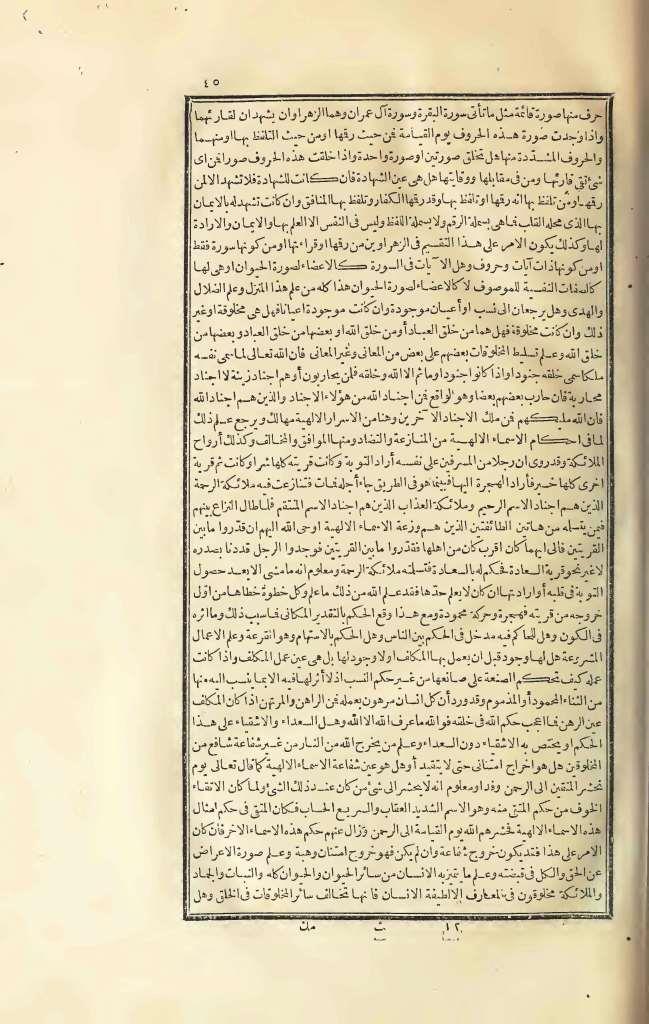 ٤٥
حرف منها صورة قائمة مثل ما تأتى سورة البقرة وسورة آل عمران وهما الزهراوان يشهدان لقارئهما
واذا وجدت صورة هذه الحروف يوم القيامة فن حيث رقها اومن حيث التلفظ بها اومنهما
والحروف المشددة منها هل تخلق صورتين او صورة واحدة واذا خلقت هذه الحروف صورا فن اى
شئ تقى قارئها ومن فى مقابلها ووقايتها هل هى عين الشهادة فان كانت للشهادة فلا تشهد الا لمن
رقها ومن تلفظ بها انه رقها او تلفظ بها وقد رقها الكفار وتلفظ بها المنافق وان كانت تشهد له بالايمان
بها الذى محله القلب فما هى بسملة الرقم ولا بسملة اللفظ وليس فى النفس الا العلم بها والايمان والارادة
لها وكذلك يكون الامر على هذا التقسيم فى الزهراوين من رقها وقراءتها او من كونها سورة فقط
او من كونها ذات آيات وحروف وهل الآيات فى السورة كالاعضاء لصورة الحيوان او هى لها
كالصفات النفسية للموصوف لا كالاعضاء لصورة الحيوان هذا كله من علم هذا المنزل وعلم الضلال
والهدى وهل يرجعان الى نسب او أعيان موجودة وان كانت موجودة اعيانا فهل هى مخلوقة او غير
ذلك وان كانت مخلوقة فهل هما من خلق العباد أو من خلق الله او بعضها من خلق العباد وبعضها من
خلق الله وعلم تسليط المخلوقات بعضهم على بعض من المعانى وغير المعانى فان الله تعالى لما سمى نفسه
ملكا سمى خلقه جنودا واذا كانوا جنودا وما ثم الا الله وخلقه فلمن يحاربون أوهم اجناد زينة لا اجناد
محاربة فان حارب بعضهم بعضا وهو الواقع فن اجناد الله من هؤلاء الاجناد والذين هم اجناد الله
فان الله مليكهم فن ملك الاجناد الآخرين وهنا من الاسرار الالهية مهالك ويرجع علم ذلك
لما فى احكام الاسماء الالهية من المنازعة والتضاد ومنها الموافق والمخالف وكذلك أرواح
الملائكة وقد روى ان رجلا من المسرفين على نفسه أراد التوبة وكانت قريته كلها شرا وكانت ثم قرية
اخرى كلها خير فأراد الهجرة اليها فبينما هو فى الطريق جاء أجله فمات فتنازعت فيه ملائكة الرحمة
الذين هم اجناد الاسم الرحيم وملائكة العذاب الذين هم اجناد الاسم المنتقم فلما طال النزاع بينهم
فيمن يتسلمه من هاتين الطائفتين الذين هم وزعة الاسماء الالهية اوحى الله اليهم ان قدروا ما بين
القريتين فالى ايهما كان اقرب كان من اهلها فقدروا ما بين القريتين فوجدوا الرجل قد دنا بصدره
لا غير نحو قرية السعادة فحكم له بالسعادة فتسلمته ملائكة الرحمة ومعلوم انه ما مشى الا بعد حصول
التوبة فى قلبه أو ارادتها ان كان لا يعلم حدها فقد علم الله من ذلك ما علم وكل خطوة خطاها من اول
خروجه من قريته فهجرة وحركة محمودة ومع هذا وقع الحكم بالتقدير المكانى فما سبب ذلك وما اثره
فى الكون وهل للحاكم فيه مدخل فى الحكم بين الناس وهل الحكم بالاستهام وهو القرعة وعلم الاعمال
المشروعة هل لها وجود قبل ان يعمل بها المكلف او لا وجود لها بل هى عين عمل المكلف واذا كانت
عمله كيف تتحكم الصنعة على صانعها من غير حكم النسب اذ لا أثر لها فيه الا بما ينسب اليه منها
من الثناء المحمود أو المذموم وقد ورد أن كل انسان مرهون بعمله فن الراهن والمرتهن اذا كان المكلف
عين الرهن فما اعجب حكم الله فى خلقه فوالله ما عرف الله الا الله وهل السعداء والاشقياء على هذا
الحكم او يختص به الاشقياء دون السعداء وعلم من يخرج الله من النار من غير شفاعة شافع من
المخلوقين هل هو اخراج امتنانى حتى لا يتقيد أو هل هو عين شفاعة الاسماء الالهية كما قال تعالى يوم
نحشر المتقين الى الرحمن وفدا ومعلوم انه لا يحشر الى شئ من كان عند ذلك الشئ ولما كان الاتقاء
الخوف من حكم المتقى منه وهو الاسم الشديد العقاب والسريع الحساب فكان المتقى فى حكم امثال
هذه الاسماء الالهية فحشرهم الله يوم القيامة الى الرحمن وزال عنهم حكم هذه الاسماء الاخر فان كان
الامر على هذا فقد يكون خروج شفاعة وان لم يكن فهو خروج امتنان وهبة وعلم صورة الاعراض
عن الحق والكل فى قبضته وعلم ما يتميز به الانسان من سائر الحيوان والحيوان كله والنبات والجماد
والملائكة مخلوقون فى المعارف الا لطيفة الانسان فانها تخالف سائر المخلوقات فى الخلق وهل
١٢ ث مك